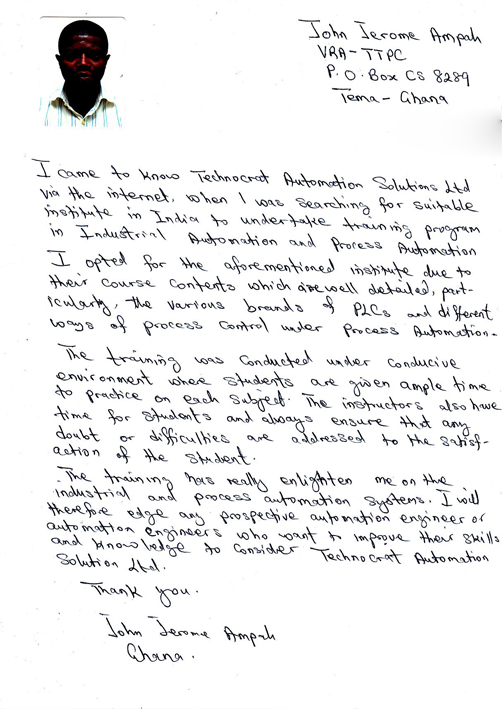 John Jerome Ampah
VRA - TTPC
P. O. Box CS 8289
Tema - Ghana
I came to know Technocrat Automation Solutions Ltd
via the internet, when I was searching for suitable
institute in India to undertake training program
in Industrial Automation and Process Automation
I opted for the aforementioned institute due to
their course contents which are well detailed, part-
icularly, the various brands of PLCs and different
ways of process control under Process Automation.
The training was conducted under conducive
environment where students are given ample time
to practice on each subject. The instructors also have
time for students and always ensure that any
doubt or difficulties are addressed to the satisf-
action of the student.
The training has really enlighten me on the
industrial and process automation systems. I will
therefore edge any prospective automation engineer or
automation engineers who want to improve their skills
and knowledge to consider Technocrat Automation
Solution Ltd.
Thank you.
John Jerome Ampah
Ghana.